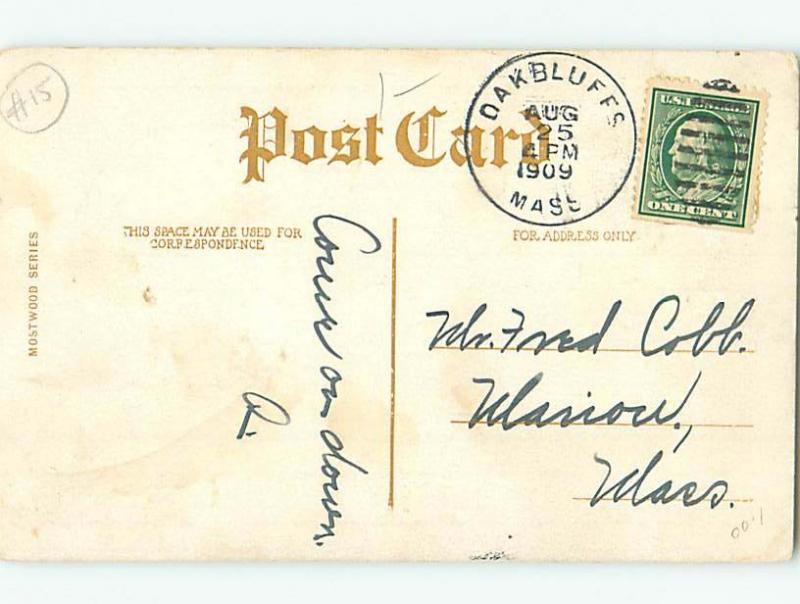 #15
Post Card
OAK BLUFFS
AUG
25
4 PM
1909
MASS
U.S.
ONE CENT
THIS SPACE MAY BE USED FOR
CORRESPONDENCE
FOR ADDRESS ONLY
MOSTWOOD SERIES
Come on down.
A.
Mr. Fred Cobb.
Marion,
Mass.
1.00